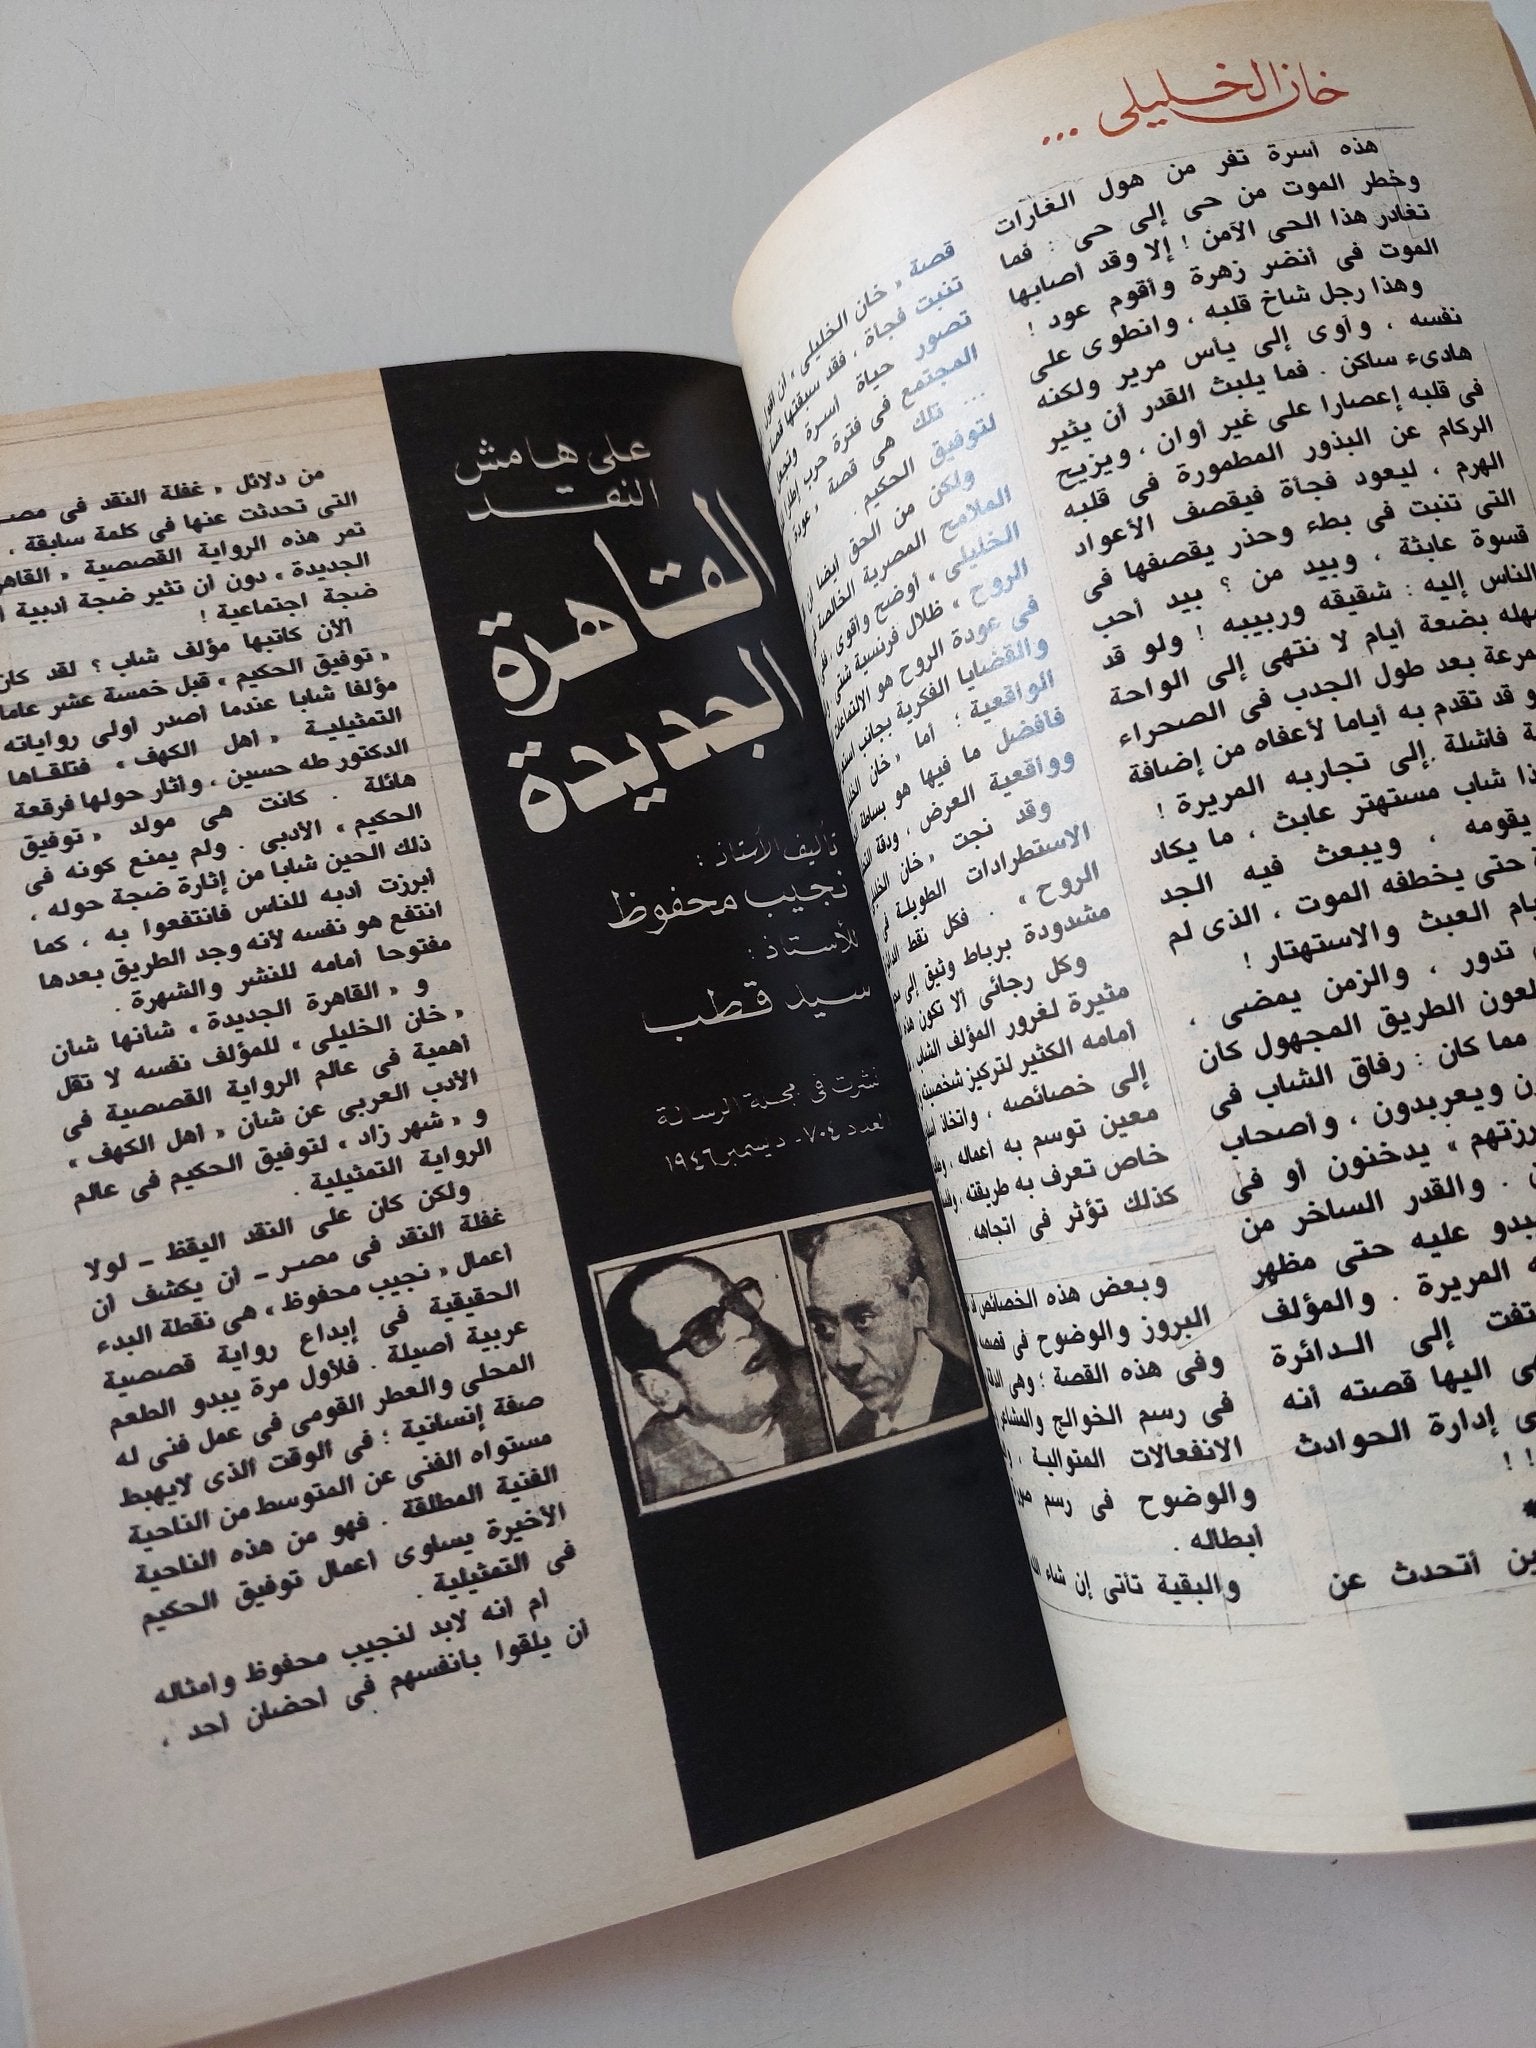 خان الخليلى ...
هذه أسرة تفر من هول الغارات
وخطر الموت من حى إلى حى : فما
تغادر هذا الحى الآمن ! إلا وقد أصابها
الموت فى أنضر زهرة وأقوم عود !
وهذا رجل شاخ قلبه ، وانطوى على
نفسه ، وأوى إلى يأس مرير ولكنه
هادىء ساكن . فما يلبث القدر أن يثير
فى قلبه إعصارا على غير أوان ، ويزيح
الركام عن البذور المطمورة فى قلبه
الهرم ، ليعود فجأة فيقصف الأعواد
التى تنبت فى بطء وحذر يقصفها فى
قسوة عابثة ، وبيد من ؟ بيد أحب
الناس إليه : شقيقه وربيبه ! ولو قد
بضعة أيام لا تنتهى إلى الواحة
بعد طول الجدب فى الصحراء
و قد تقدم به أياما لأعفاه من إضافة
فاشلة إلى تجاربه المريرة !
شاب مستهتر عابث ، ما يكاد
يقومه ، ويبعث فيه الجد
حتى يخطفه الموت ، الذى لم
العبث والاستهتار !
تدور ، والزمن يمضى ،
الطريق المجهول كأن
مما كان : رفاق الشاب فى
ويعربدون ، وأصحاب
يدخنون أو فى
. والقدر الساخر من
عليه حتى مظهر
المريرة . والمؤلف
إلى الدائرة
اليها قصته أنه
إدارة الحوادث
! !
أتحدث عن
قصة « خان الخليلى »
تنبت فجأة ، فقد سبقتها قصة
تصور حياة أسرة وتجعل
المجتمع فى فترة حرب
... تلك هى قصة « عودة
لتوفيق الحكيم .
ولكن من الحق أيضا أن
الملامح المصرية الخالصة
الخليلى » أوضح وأقوى ، ففى
الروح » ظلال فرنسية شتى
فى عودة الروح هو الالتماعات
والقضايا الفكرية بجانب
الواقعية ؛ أما « خان
فأفضل ما فيها هو بساطة
وواقعية العرض ، ودقة
وقد نجت « خان
الاستطرادات الطويلة فى
الروح » . فكل نقط
مشدودة برباط وثيق إلى
وكل رجائى ألا تكون هذه
مثيرة لغرور المؤلف الشاب ،
أمامه الكثير لتركيز شخصيته
إلى خصائصه ، واتخاذ
معين توسم به أعماله ،
خاص تعرف به طريقته ،
كذلك تؤثر فى اتجاهه .
وبعض هذه الخصائص
البروز والوضوح فى
وفى هذه القصة ؛ وهى الدقة
فى رسم الخوالج والمشاعر
الانفعالات المتوالية ،
والوضوح فى رسم
أبطاله .
والبقية تأتى إن شاء
على هامش
النقد
القاهرة
الجديدة
تأليف الأستاذ :
نجيب محفوظ
للأستاذ :
سيد قطب
نشرت فى مجلة الرسالة
العدد ٧٠٤ - ديسمبر ١٩٤٦
من دلائل « غفلة النقد فى
التى تحدثت عنها فى كلمة سابقة ،
تمر هذه الرواية القصصية «
الجديدة » دون أن تثير ضجة أدبية
ضجة اجتماعية !
ألأن كاتبها مؤلف شاب ؟ لقد كان
« توفيق الحكيم » قبل خمسة عشر عاما
مؤلفا شابا عندما أصدر أولى رواياته
التمثيلية « أهل الكهف » فتلقاها
الدكتور طه حسين ، وأثار حولها فرقعة
هائلة . كانت هى مولد « توفيق
الحكيم » الأدبى . ولم يمنع كونه فى
ذلك الحين شابا من إثارة ضجة حوله ،
أبرزت أدبه للناس فانتفعوا به ، كما
انتفع هو نفسه لأنه وجد الطريق بعدها
مفتوحا أمامه للنشر والشهرة .
و « القاهرة الجديدة » شأنها شأن
« خان الخليلى » للمؤلف نفسه لا تقل
أهمية فى عالم الرواية القصصية فى
الأدب العربى عن شأن « أهل الكهف »
و « شهر زاد » لتوفيق الحكيم فى عالم
الرواية التمثيلية .
ولكن كان على النقد اليقظ - لولا
غفلة النقد فى مصر - أن يكشف أن
أعمال « نجيب محفوظ » هى نقطة البدء
الحقيقية فى إبداع رواية قصصية
عربية أصيلة . فلأول مرة يبدو الطعم
المحلى والعطر القومى فى عمل فنى له
صفة إنسانية ؛ فى الوقت الذى لايهبط
مستواه الفنى عن المتوسط من الناحية
الفنية المطلقة . فهو من هذه الناحية
الأخيرة يساوى أعمال توفيق الحكيم
فى التمثيلية .
أم أنه لابد لنجيب محفوظ وأمثاله
أن يلقوا بأنفسهم فى أحضان أحد ،